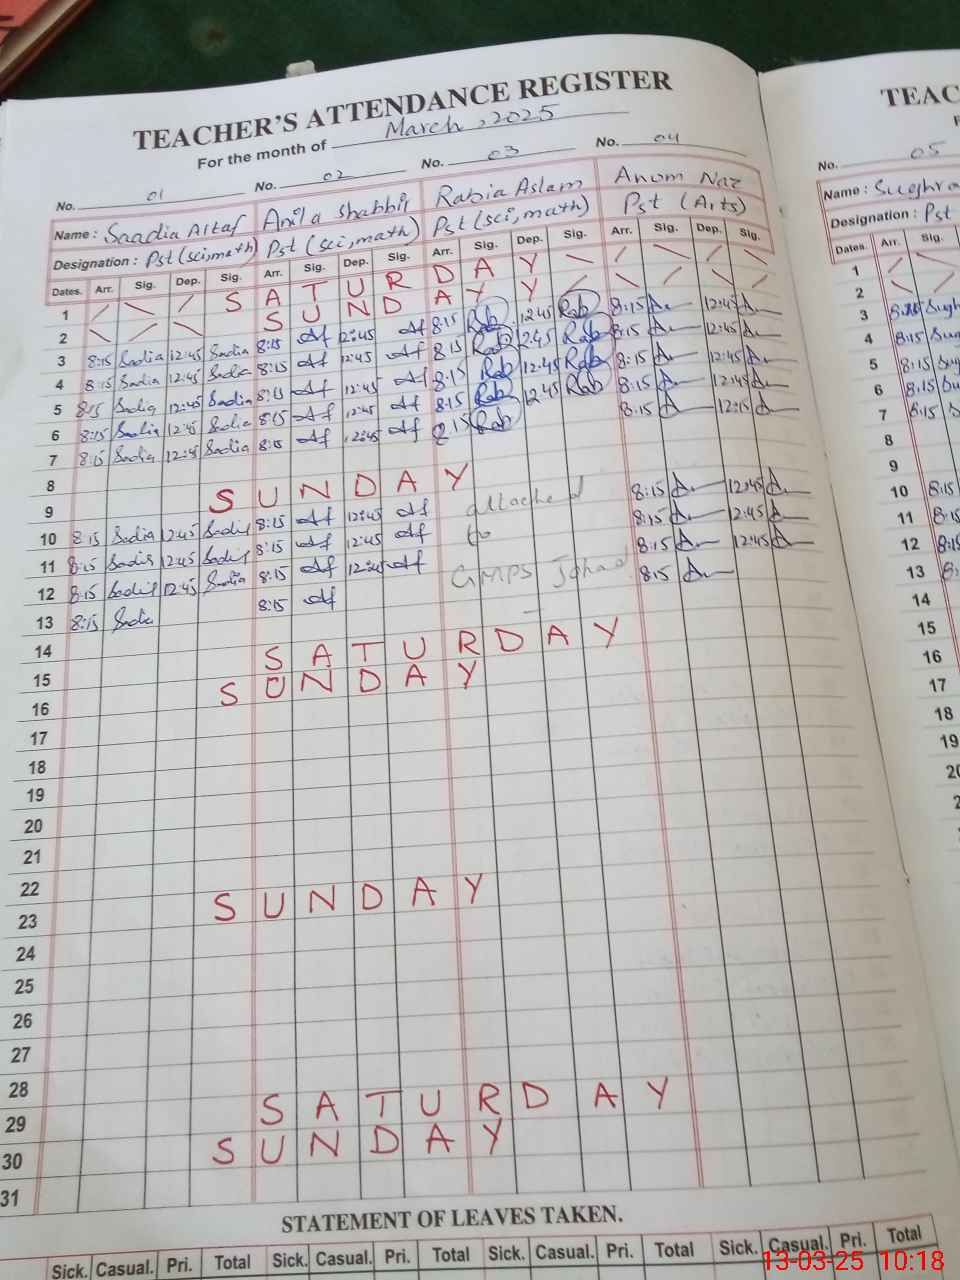 TEACHER'S ATTENDANCE REGISTER
For the month of March, 2025
No. 01 No. 02 No. 03 No. 04
Name : Saadia Altaf Anila Shabbir Rabia Aslam Anom Naz
Designation : Pst (sci,math) Pst (sci,math) Pst (sci,math) Pst (Arts)
Dates. Arr. Sig. Dep. Sig. Arr. Sig. Dep. Sig. Arr. Sig. Dep. Sig. Arr. Sig. Dep. Sig.
1 SATURDAY
2 SUNDAY
3 8:15 Sadia 12:45 Sadia 8:15 Af 12:45 Af 8:15 Rab 12:45 Rab 8:15 A 12:45 A
4 8:15 Sadia 12:45 Sadia 8:15 Af 12:45 Af 8:15 Rab 12:45 Rab 8:15 A 12:45 A
5 8:15 Sadia 12:45 Sadia 8:15 Af 12:45 Af 8:15 Rab 12:45 Rab 8:15 A 12:45 A
6 8:15 Sadia 12:45 Sadia 8:15 Af 12:45 Af 8:15 Rab 12:45 Rab 8:15 A 12:45 A
7 8:15 Sadia 12:45 Sadia 8:15 Af 12:45 Af 8:15 Rab 8:15 A 12:15 A
8
9 SUNDAY
10 8:15 Sadia 12:45 Sadia 8:15 Af 12:45 Af Attached 8:15 A 12:45 A
11 8:15 Sadia 12:45 Sadia 8:15 Af 12:45 Af to 8:15 A 2:45 A
12 8:15 Sadia 12:45 Sadia 8:15 Af 12:45 Af GMPS 8:15 A 12:45 A
13 8:15 Sadia 8:15 Af 8:15 A
14
15 SATURDAY
16 SUNDAY
17
18
19
20
21
22
23 SUNDAY
24
25
26
27
28
29 SATURDAY
30 SUNDAY
31
STATEMENT OF LEAVES TAKEN.
Sick. Casual. Pri. Total Sick. Casual. Pri. Total Sick. Casual. Pri. Total Sick. Casual. Pri. Total
TEAC
No. 05
Name : Sughra
Designation : Pst
Dates. Arr. Sig.
1
2
3 8:15 Sugh
4 8:15 Sug
5 8:15 Sug
6 8:15 Su
7 8:15 S
8
9
10 8:15
11 8:15
12 8:15
13 8:
14
15
16
17
18
19
13-03-25 10:18